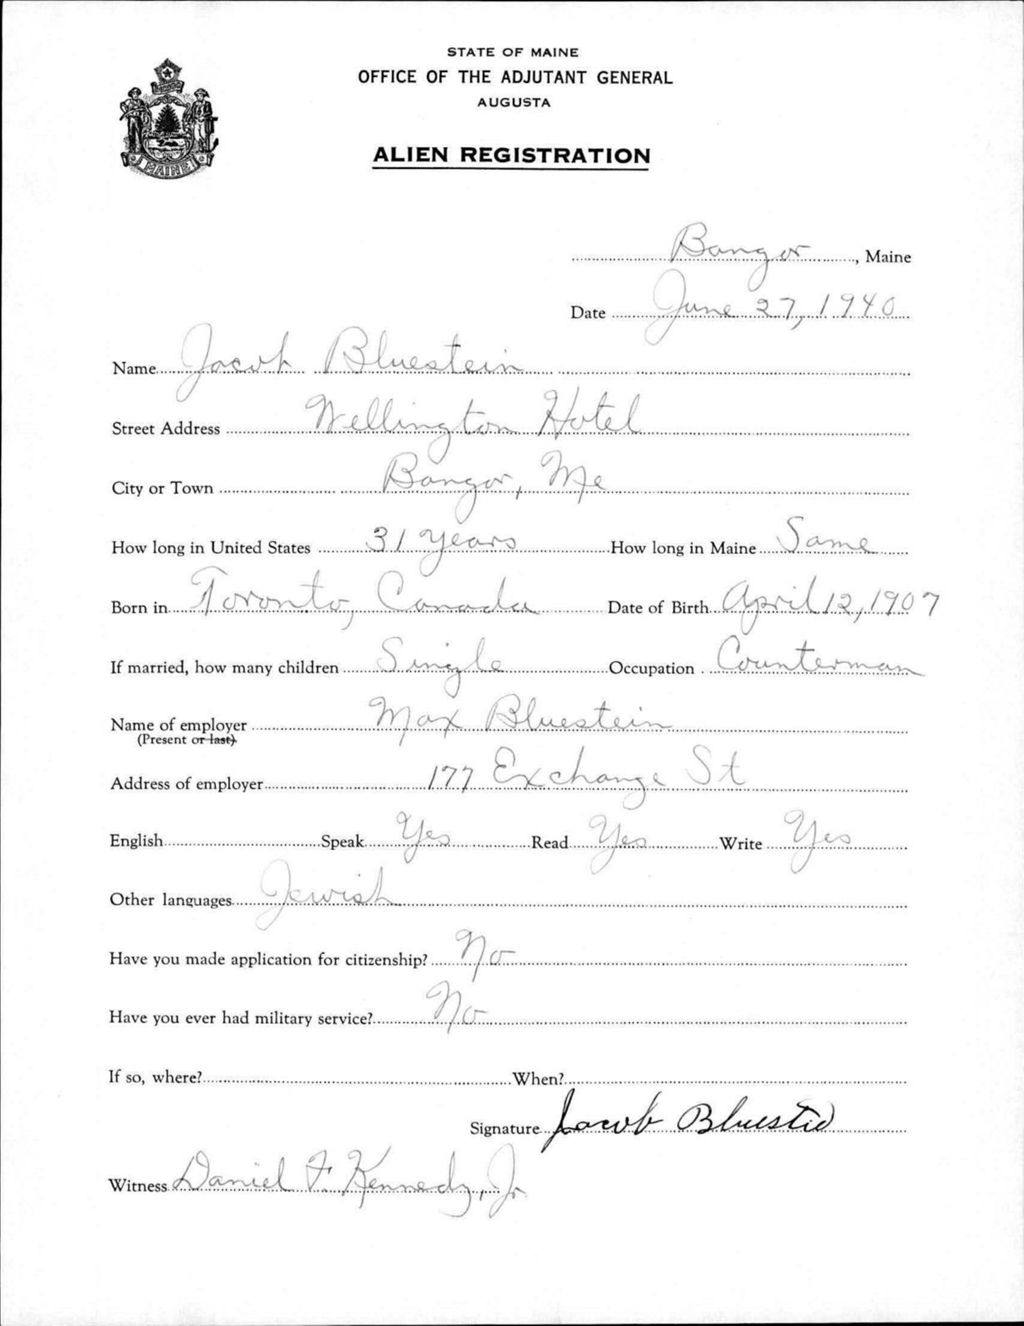 STATE OF MAINE
OFFICE OF THE ADJUTANT GENERAL
AUGUSTA
ALIEN REGISTRATION
MAINE
Bangor, Maine
Date June 27, 1940
Name Jacob Bluestein
Street Address Wellington Hotel
City or Town Bangor, Me
How long in United States 31 Years How long in Maine Same
Born in Toronto, Canada Date of Birth April 12, 1907
If married, how many children Single Occupation Counterman
Name of employer Max Bluestein
(Present or last)
Address of employer 177 Exchange St
English Speak Yes Read Yes Write Yes
Other languages Jewish
Have you made application for citizenship? No
Have you ever had military service? No
If so, where? When?
Signature Jacob
Witness Daniel F. Kennedy, Jr